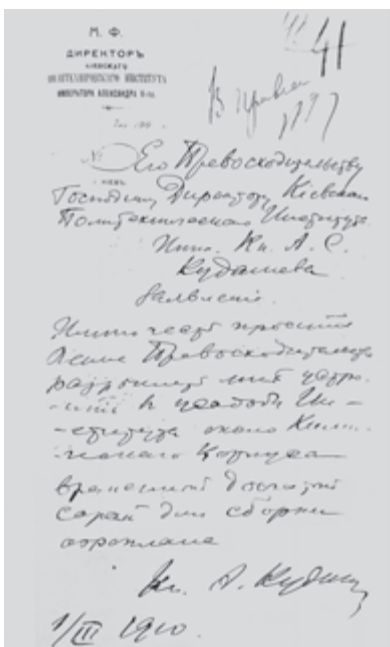 М. Ф.
ДИРЕКТОРЪ
КІЕВСКАГО
ПОЛИТЕХНИЧЕСКАГО ИНСТИТУТА
ИМПЕРАТОРА АЛЕКСАНДРА II-го.
41
В
№
Его Превосходительству
Господину Директору Кіевскаго
Политехническаго Института
Инж. Кн. А. С.
Кудашева
Заявленіе.
Имѣю честь просить
Ваше Превосходительство
разрѣшить мнѣ устро-
ить в усадьбѣ Ин-
-ститута около Хими-
ческаго Корпуса
временный досчатый
сарай для сборки
аэроплана
Кн. А. Кудашев
1/III 1910.